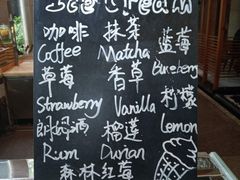 Ice Cream
咖啡 抹茶 蓝莓
Coffee Matcha Blueberry
草莓 香草 柠檬
Strawberry Vanilla Lemon
朗姆酒 榴莲
Rum Durian
森林红莓